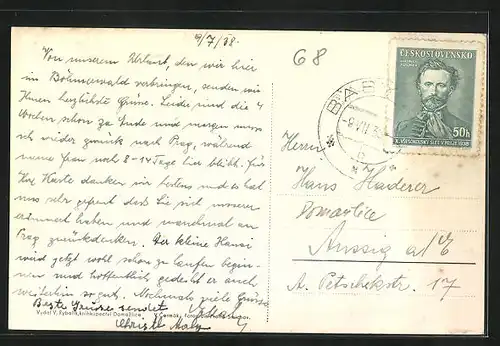 9/7/38.
68
Von unserem Urlaub, den wir hier
im Böhmerwald verbringen, senden wir
Ihnen herzlichste Grüsse. Leider sind die 4
Wochen schon zu Ende und morgen muss
ich wieder zurück nach Prag, während
meine Frau noch 8-14 Tage hier bleibt. Für
Ihre Karte danken wir bestens und es hat
uns sehr gefreut dass Sie sich unserer
erinnert haben und manchmal an
Prag zurückdenken. Der kleine Hansi
wird jetzt wohl schon zu laufen begin-
nen und hoffentlich gedeiht er auch
weiterhin so gut. Nochmals viele Grüsse
Beste Grüsse sendet
Christl
Vydal V. Rybař, knihkupectví Domažlice
ČESKOSLOVENSKO
50h
X. VŠESOKOLSKÝ SLET V PRAZE 1938
Herrn
Hans Haderer
Domažlice
Aussig a/E
A. Petschekstr. 17